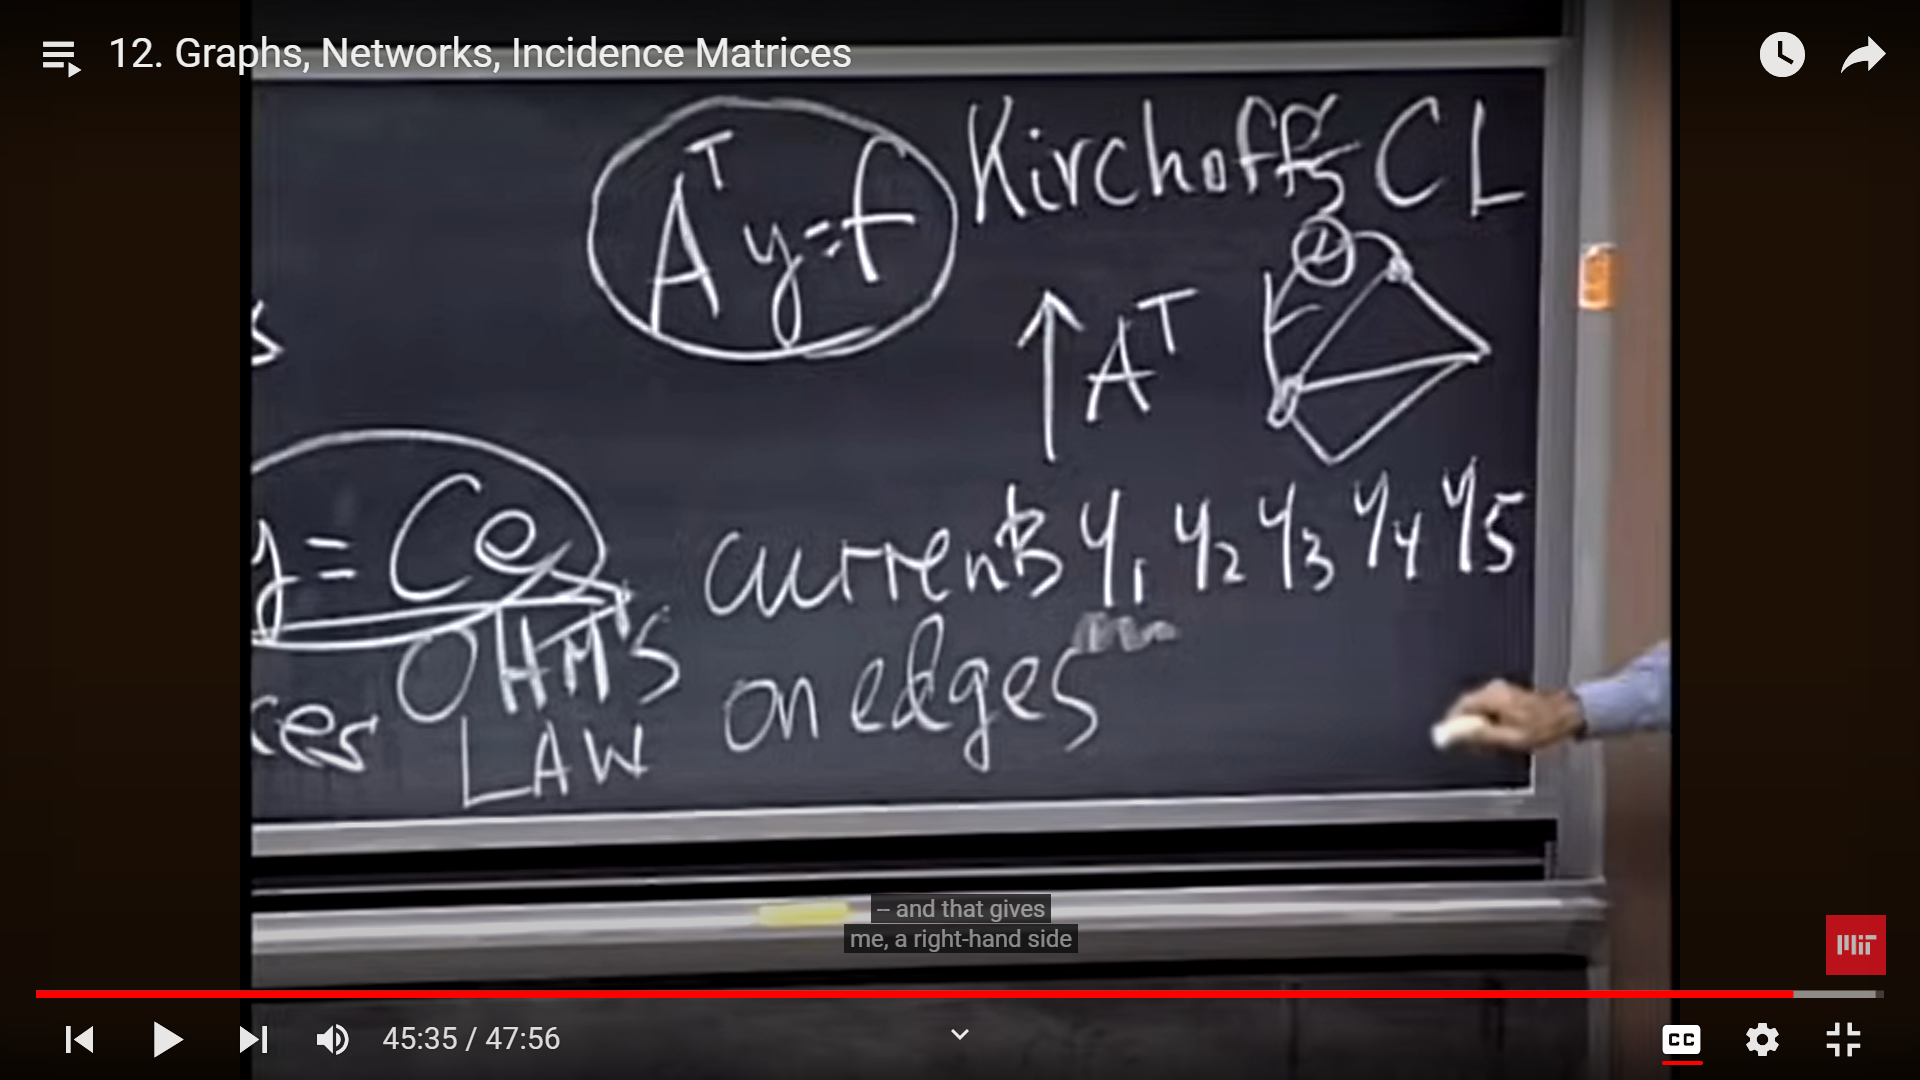 12. Graphs, Networks, Incidence Matrices
Aᵀy=f
Kirchoff's CL
↑ Aᵀ
s
y = Ce
currents y₁ y₂ y₃ y₄ y₅
on edges
OHM'S
LAW
– and that gives
me, a right-hand side
MIT
45:35 / 47:56
CC